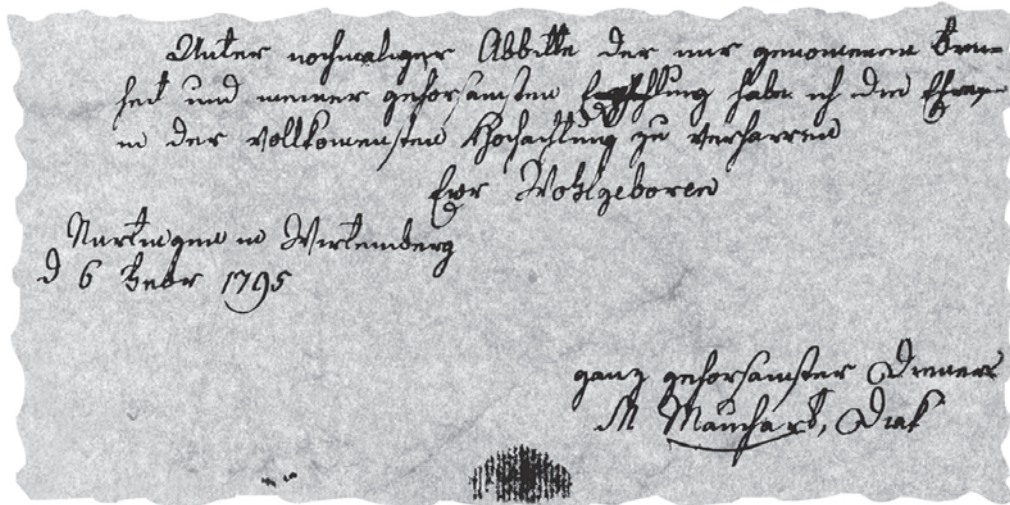 Unter nochmaliger Abbitte der mir genomenen Frei-
heit und meiner gehorsamsten Empfehlung habe ich die Ehre
in der vollkomensten Hochachtung zu verharren
Ewr Wohlgeboren
Nürtingen in Wirtemberg
d 6 Febr 1795
ganz gehorsamster Diener
M Mauchart, Diak